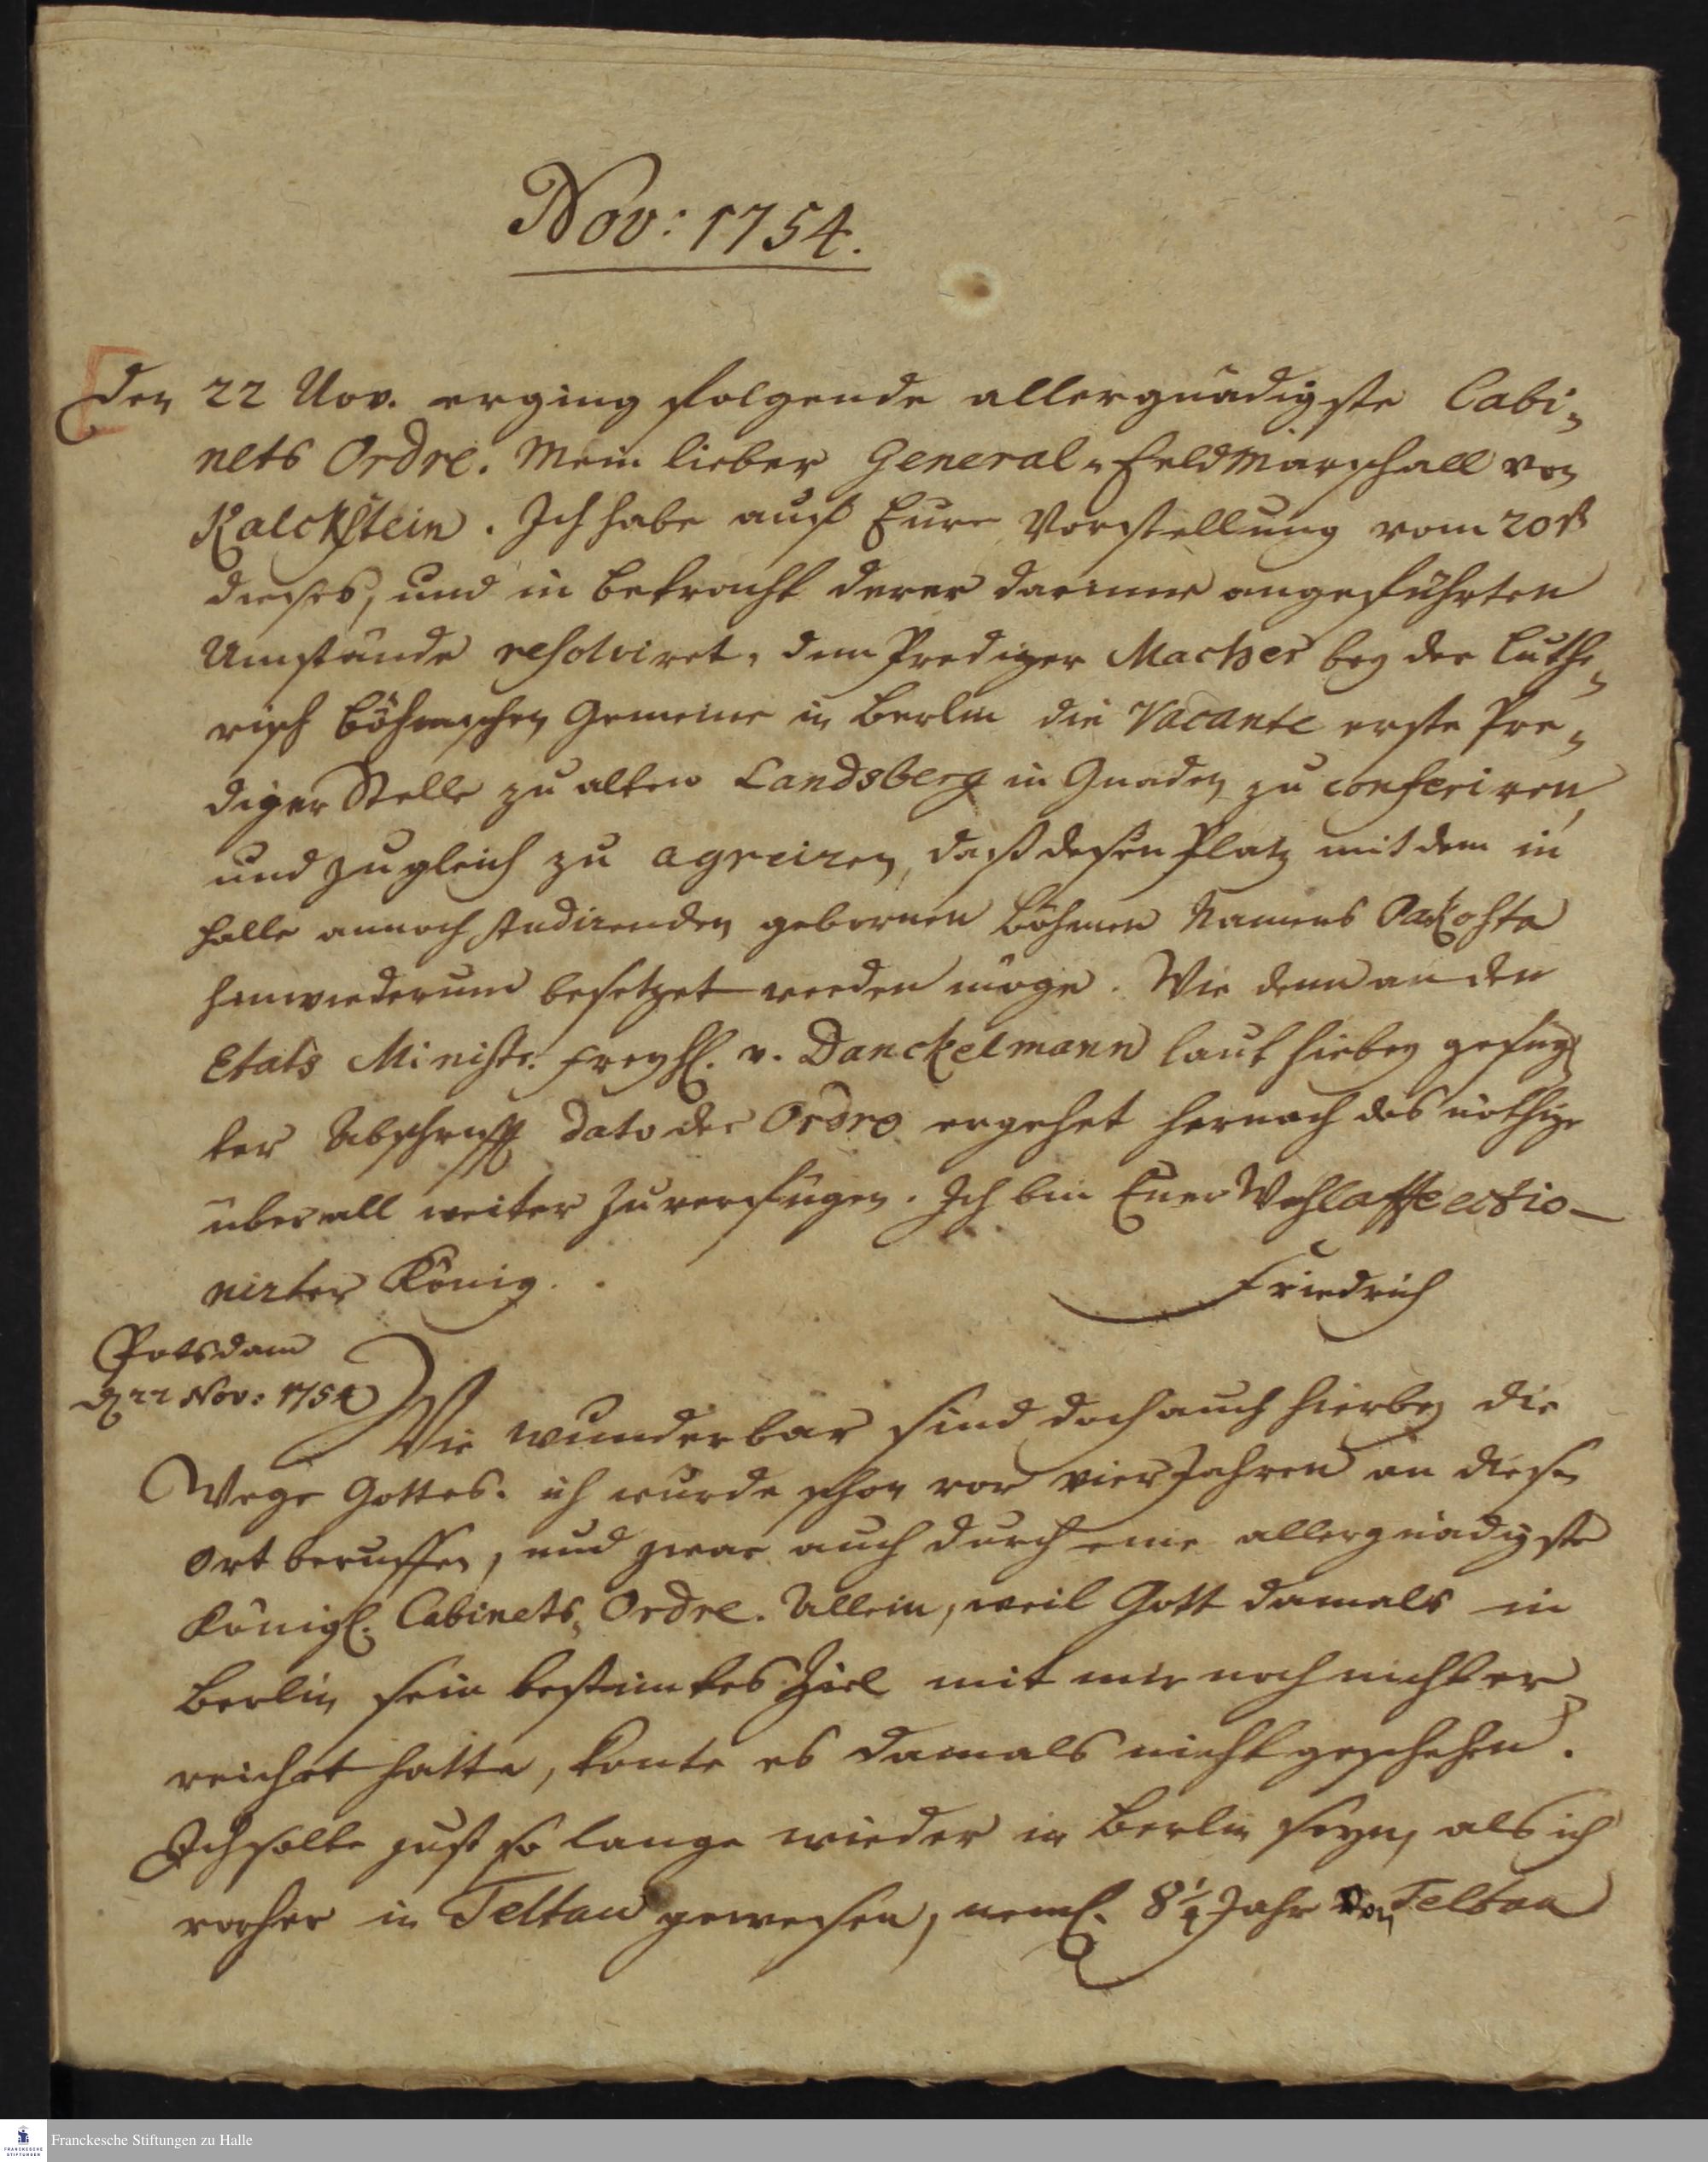 Nov: 1754.
Den 22 Nov. erging folgende allergnädigste Cabi-
nets Ordre. Mein lieber General-Feldmarschall von
Kalckstein. Ich habe auf Eure Vorstellung vom 20st
dieses, und in betracht derer darinne angeführten
Umstände resolviret, dem Prediger Macher bey der Luthe-
risch böhmischen Gemeine in Berlin die Vacante erste Pre-
diger Stelle zu alten Landsberg in Gnaden zu conferiren,
und zugleich zu agreiren, daß deßen Platz mit dem in
Halle annoch studirenden gebornen Böhmen Namens
hinwiederum besetzet werden möge. Wie denn an den
Etats Ministr. Freyh. v. Danckelmann laut hiebey gefüg-
ter Abschrifft dato der Ordre ergehet hernach das nöthige
überall weiter zu verfügen. Ich bin Euer Wohlaffectio-
nirter König.
Friedrich
Potsdam
d 22 Nov: 1754
Wie wunderbar sind doch auch hierbey die
Wege Gottes. ich wurde schon vor vier Jahren an diesen
Ort beruffen, und zwar auch durch eine allergnädigste
Königl. Cabinets-Ordre. Allein, weil Gott damals in
Berlin sein bestimtes Ziel mit mir noch nicht er-
reichet hatte, konte es damals nicht geschehen.
Ich solte just so lange wieder in Berlin seyn, als ich
vorher in Teltau gewesen, neml. 8¼ Jahr Von Teltau
Franckesche Stiftungen zu Halle
FRANCKESCHE
STIFTUNGEN